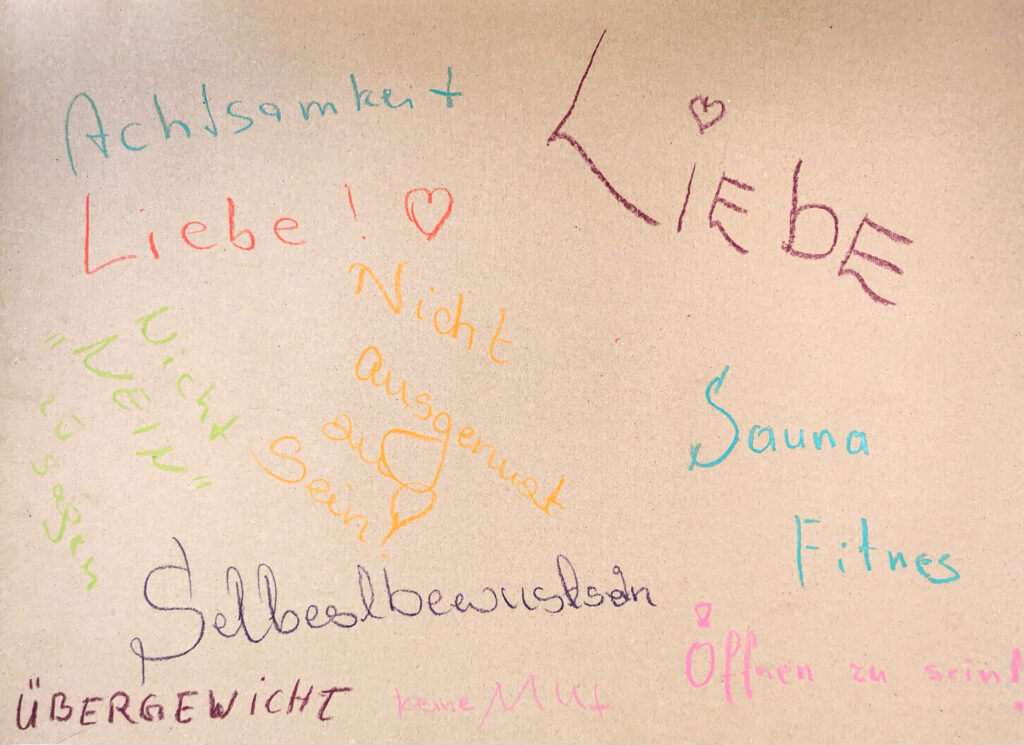 Achtsamkeit
LiEbE
Liebe!
Nicht
ausgenuat
zu
Sein!
Nicht
"NEIN"
zu sagen
Sauna
Fitnes
Selbestbewustsein
Öffnen zu sein!
ÜBERGEWiCHT
keine MUt